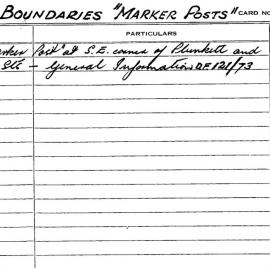 BOUNDARIES "MARKER POSTS" CARD NO
PARTICULARS
Post" at S.E. corner of Plunkett and
Sts - General Information DF 121/73